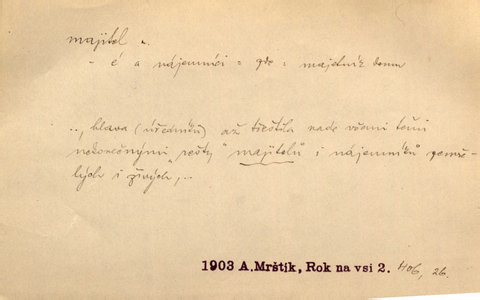 majitel m.
- é a nájemníci = zde = majetník domu
..., hlava (úředníků) až třeštila nade všemi těmi
nekonečnými „rešty“ majitelů i nájemníků zemře-
lých i živých,...
1903 A. Mrštík, Rok na vsi 2. 406, 26.